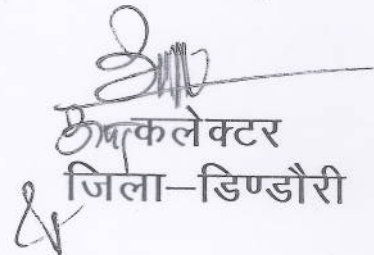 कलेक्टर
जिला–डिण्डौरी